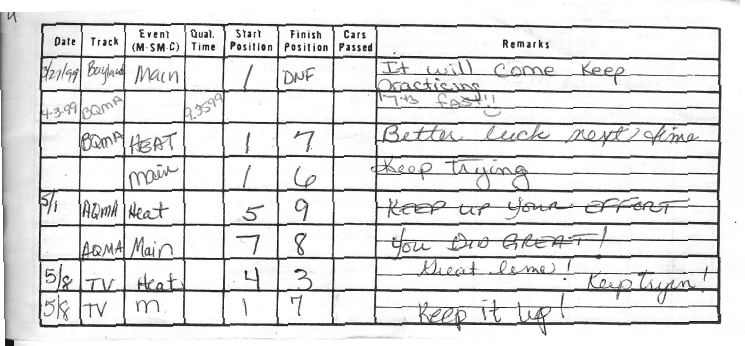 4
Date Track Event (M-SM-C) Qual. Time Start Position Finish Position Cars Passed Remarks
3/27/99 Main 1 DNF It will Come Keep
practicing
4-3-99 BQMA 9.3599 17th fast!!
BQMA HEAT 1 7 Better luck next time
Main 1 6 Keep Trying
5/1 AQMA Heat 5 9 KEEP UP YOUR EFFORT
AQMA Main 7 8 You DID GREAT!
5/8 TV Heat 4 3 Great ! Keep tryin!
5/8 TV M 1 7 Keep it up!